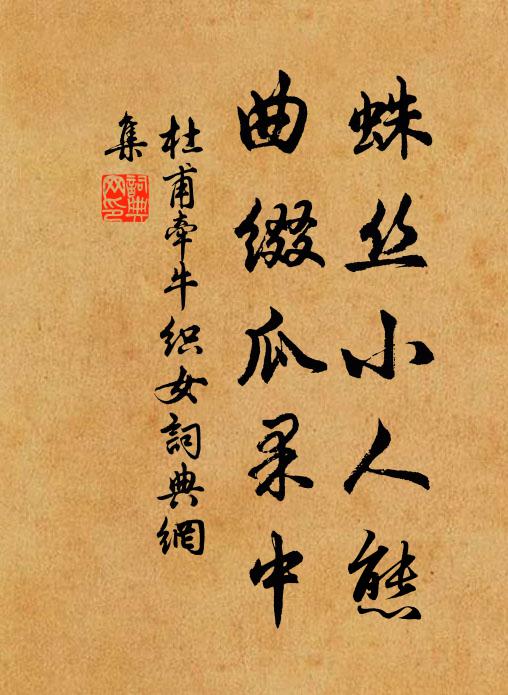 蛛丝小人態
曲缀瓜果中
杜甫牽牛织女詞典網
集
詞典网印